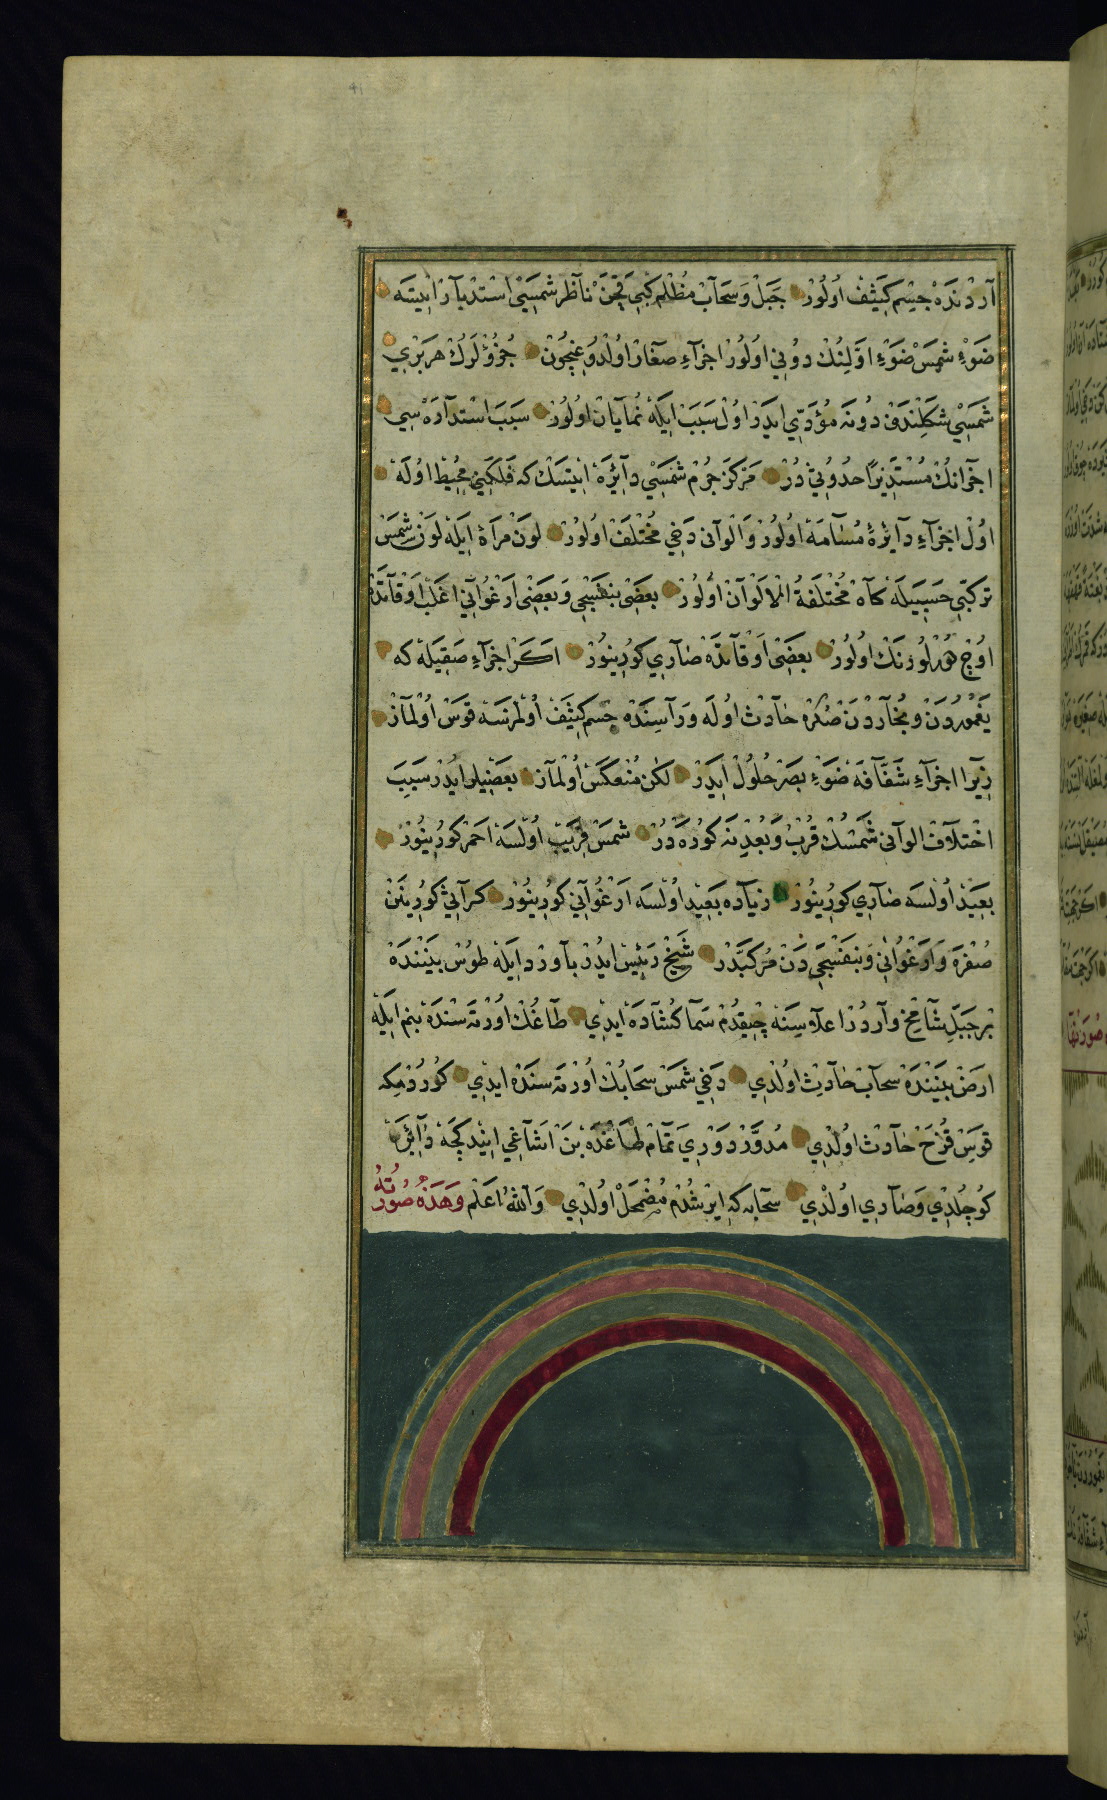 آردنده جسم كثيف اولور جبل و سحاب مظلم كبي قچن ناظر شمسي استدبار ايتسه
ضوء شمس ضوء اولنك دوني اولور اجزاء صغار اولدوغيچون جزؤلرك هر بري
شمسي شكلندن دونه مؤدي ايدر اول سبب ايله نمايان اولور سبب استداره سي
اجزانك مستديرا حدوثي در مركز جرم شمسي دائره ايتسك كه فلكي محيط اوله
اول اجزاء دائرة مسامه اولور و الوانى دخي مختلف اولور لون مرآة ايله لون شمس
تركبي حسبيله كاه مختلفة الالوان اولور بعضى بنفسجي و بعضى ارغواني اغلب اوقاتده
اوچ رنك اولور بعضى اوقاتده صاري كورينور اكر اجزاء صقيله كه
يغموردن و بخاردن صكره حادث اوله وراسنده جسم كثيف اولمزسه قوس اولماز
زيرا اجزاء شفافه ضوء بصر حلول ايدر لكن منعكس اولماز بعضيلر ايدر سبب
اختلاف الوانى شمسك قرب و بعدنه كوره در شمس قريب اولسه احمر كورينور
بعيد اولسه صاري كورينور زياده بعيد اولسه ارغواني كورينور كراثي كورينن
صفره و ارغواني و بنفسجي دن مركبدر شيخ رئيس ايدر باورد ايله طوس بيننده
بر جبل شامخ واردر اعلاسنه چيقدم سما كشاده ايدي طاغك اورته سنده بنم ايله
ارض بيننده سحاب حادث اولدي دخي شمس سحابك اورته سنده ايدي كوردم كه
قوس قزح حادث اولدي مدور دوري تمام طاغده بن اشاغي ايندكچه دائره
كوچلدي و صاري اولدي سحابه كه ايرشدم مضمحل اولدي والله اعلم وهذه صورته